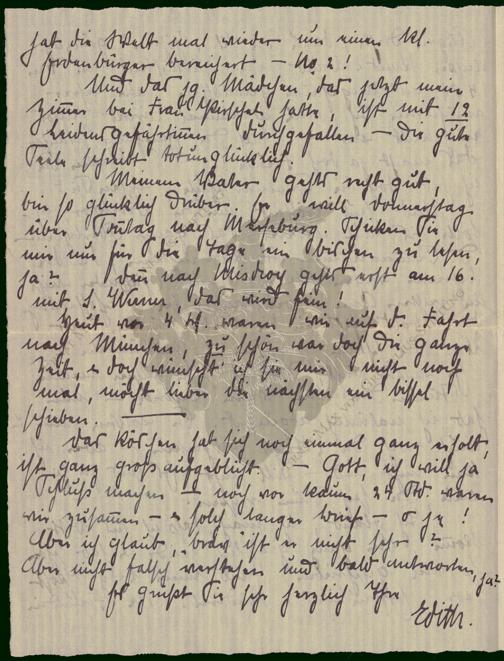 hat die Welt mal wieder um einen kl.
Erdenbürger bereichert – No 2!
Und das jg. Mädchen, das jetzt mein
Zimmer bei Frau hatte, ist mit 12
Leidensgefährtinnen durchgefallen – die gute
Seele schreibt totunglücklich.
Meinem Vater gehts recht gut,
bin so glücklich drüber. Er will Donnerstag
über Sonntag nach Merseburg. Schicken Sie
mir nur für die Tage ein bischen zu lesen,
ja? Denn nach Misdroy gehts erst am 16.
mit das wird fein!
Heut vor 4 W. waren wir auf d. Fahrt
nach München, zu schön war doch die ganze
Zeit, u doch wünscht ich sie mir nicht noch
mal, möcht lieber die nächsten ein bissel
schieben.
Das Röschen hat sich noch einmal ganz erholt,
ist ganz groß aufgeblüht. – Gott, ich will ja
Schluß machen – noch vor kaum 24 Std. waren
wir zusammen – u solch langer Brief – o je!
Aber ich glaub, "brav" ist er nicht sehr?
Aber nicht falsch verstehen und bald antworten, ja?
Es grüßt Sie sehr herzlich Ihre
Edith.